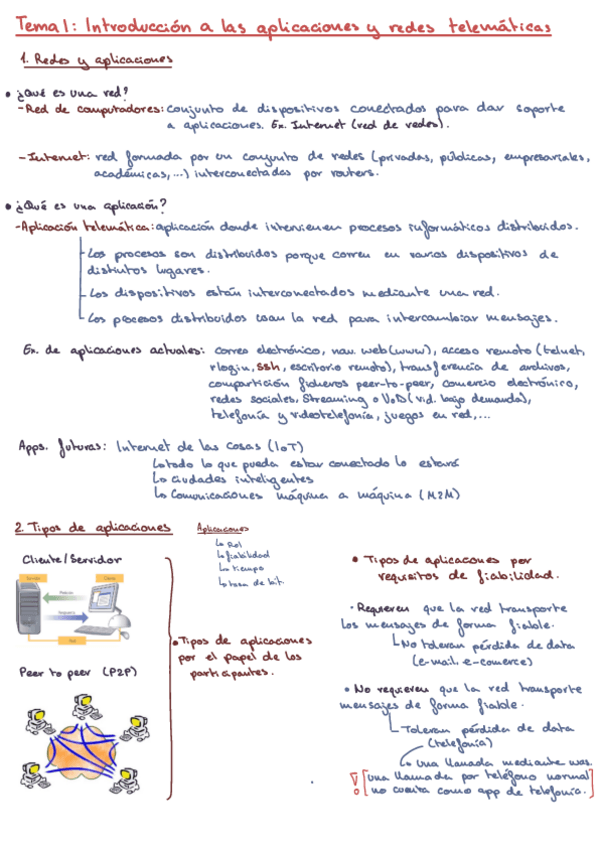 Tema 1: Introducción a las aplicaciones y redes telemáticas
1. Redes y aplicaciones
• ¿Qué es una red?
- Red de computadores: conjunto de dispositivos conectados para dar soporte
a aplicaciones. Ex. Internet (red de redes).
- Internet: red formada por un conjunto de redes (privadas, públicas, empresariales,
académicas, ...) interconectadas por routers.
• ¿Qué es una aplicación?
- Aplicación telemática: aplicación donde intervienen procesos informáticos distribuidos.
Los procesos son distribuidos porque corren en varios dispositivos de
distintos lugares.
- Los dispositivos están interconectados mediante una red.
Los procesos distribuidos usan la red para intercambiar mensajes.
Ex. de aplicaciones actuales: correo electrónico, nav. web (www), acceso remoto (telnet,
rlogin, ssh, escritorio remoto), transferencia de archivos,
compartición ficheros peer-to-peer, comercio electrónico,
redes sociales, Streaming o VoD (vid. bajo demanda),
telefonía y videotelefonía, juegos en red, ...
Apps. futuras: Internet de las Cosas (IoT)
todo lo que pueda estar conectado lo estará
Ciudades inteligentes
Comunicaciones máquina a máquina (M2M)
2. Tipos de aplicaciones
Aplicaciones
Rol
fiabilidad
tiempo
tasa de bit.
Cliente/Servidor
Servidor
Cliente
Petición
Respuesta
Red
Peer to peer (P2P)
• Tipos de aplicaciones
por el papel de los
participantes.
• Tipos de aplicaciones por
requisitos de fiabilidad.
• Requieren que la red transporte
los mensajes de forma fiable.
No toleran pérdida de data
(e-mail, e-comerce)
• No requieren que la red transporte
mensajes de forma fiable.
Toleran pérdida de data
(telefonía)
una llamada mediante was.
! [una llamada por teléfono normal
no cuenta como app de telefonía.]